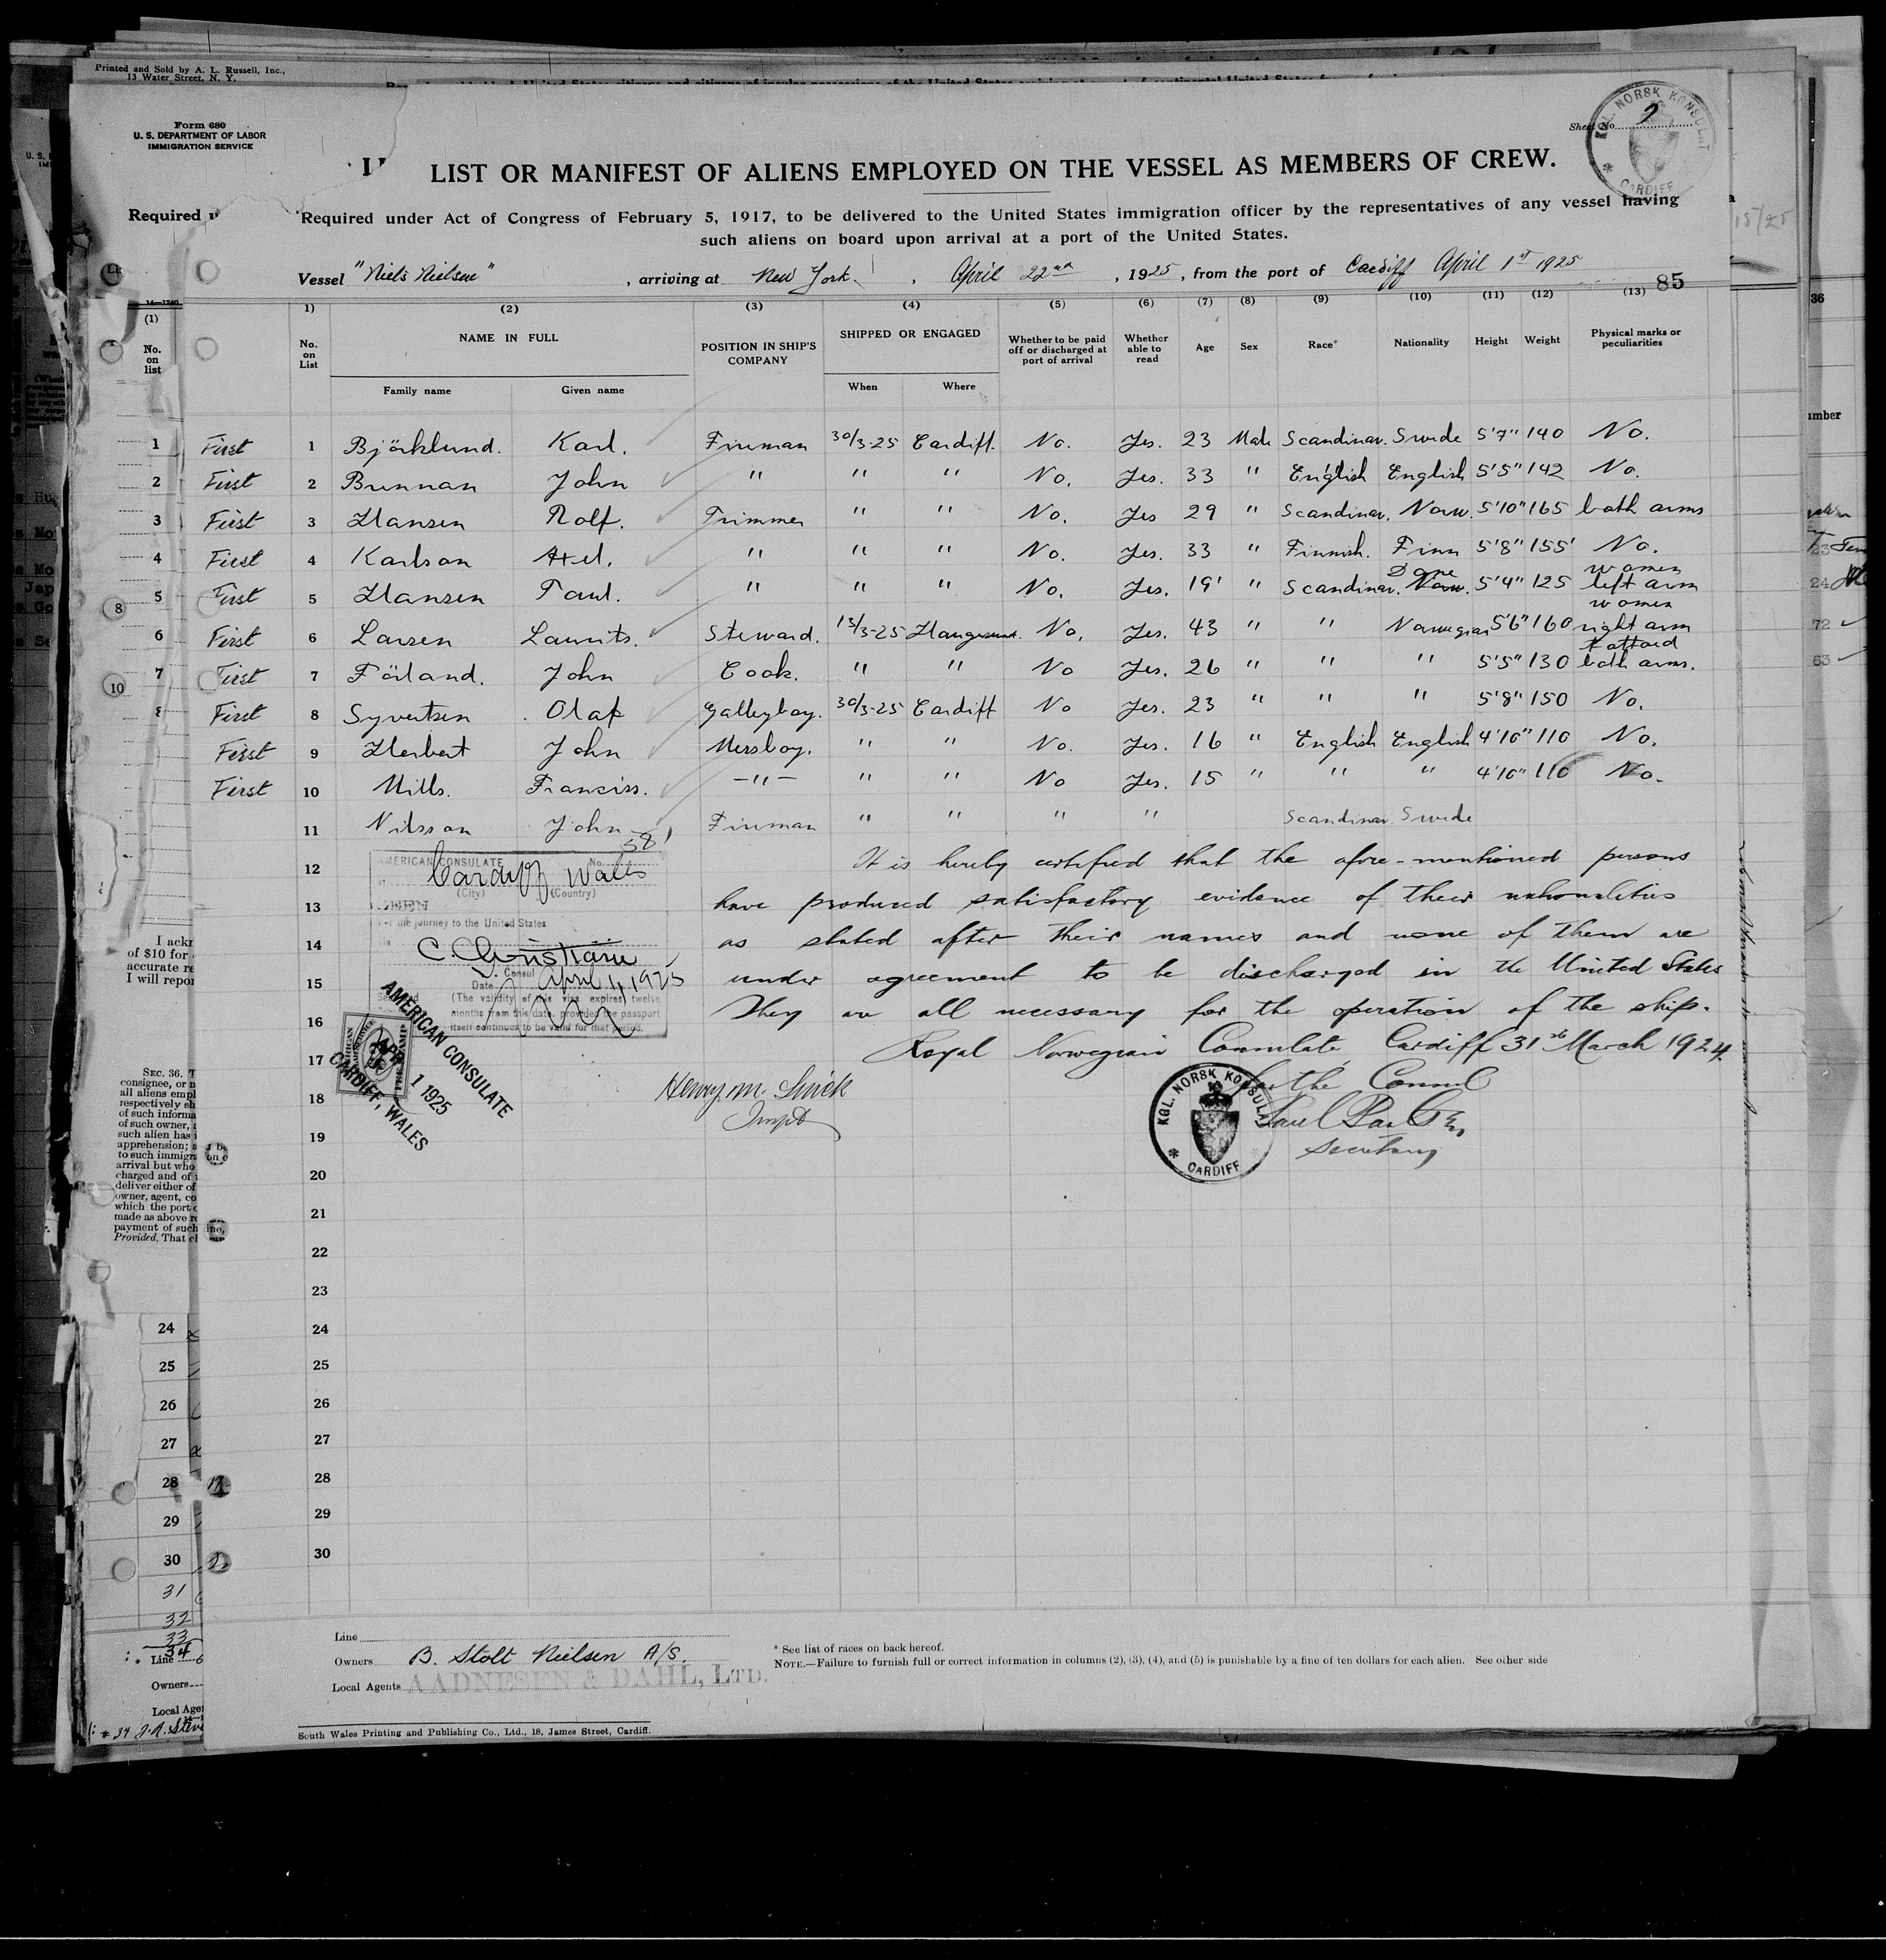 Printed and Sold by A. L. Russell, Inc.,
13 Water Street, N. Y.
Form 680
U. S. DEPARTMENT OF LABOR
IMMIGRATION SERVICE
Sheet No. 2
KGL. NORSK KONSULAT
* CARDIFF
LIST OR MANIFEST OF ALIENS EMPLOYED ON THE VESSEL AS MEMBERS OF CREW.
Required under Act of Congress of February 5, 1917, to be delivered to the United States immigration officer by the representatives of any vessel having
such aliens on board upon arrival at a port of the United States.
Vessel "Niels Nielsen", arriving at New York. , April 22nd, 1925, from the port of Cardiff April 1st 1925
85
1) (2) (3) (4) (5) (6) (7) (8) (9) (10) (11) (12) (13)
No. on List NAME IN FULL Family name Given name POSITION IN SHIP'S COMPANY SHIPPED OR ENGAGED When Where Whether to be paid off or discharged at port of arrival Whether able to read Age Sex Race* Nationality Height Weight Physical marks or peculiarities
First 1 Björklund. Karl. Fireman 30/3-25 Cardiff. No. Yes. 23 Male Scandinav. Swede 5'7" 140 No.
First 2 Brennan John " " " No. Yes. 33 " English English 5'5" 142 No.
First 3 Hansen Rolf. Trimmer " " No. Yes 29 " Scandinav. Norw. 5'10" 165 both arms
First 4 Karlson Axel. " " " No. Yes. 33 " Finnish. Finn 5'8" 155 No.
First 5 Hansen Paul. " " " No. Yes. 19 " Scandinav. Norw. Dane 5'4" 125 women left arm
First 6 Larsen Laurits. Steward. 13/3-25 Haugesund. No. Yes. 43 " " Norwegian 5'6" 160 women right arm
First 7 Förland. John Cook. " " No Yes. 26 " " " 5'5" 130 tattoed both arms.
First 8 Syvertsen Olaf Galleyboy. 30/3-25 Cardiff No Yes. 23 " " " 5'8" 150 No.
First 9 Herbert John Messboy. " " No. Yes. 16 " English English 4'10" 110 No.
First 10 Mills. Franciss. -"- " " No Yes. 15 " " " 4'10" 110 No.
11 Nilsson John Fireman " " " " Scandinav. Swede
12
13
14
15
16
17
18
19
20
21
22
23
24
25
26
27
28
29
30
It is hereby certified that the afore-mentioned persons
have produced satisfactory evidence of their nationalities
as stated after their names and none of them are
under agreement to be discharged in the United States
They are all necessary for the operation of the ship.
Royal Norwegian Consulate, Cardiff 31st March 1924.
for the Consul
secretary
KGL. NORSK KONSULAT
* CARDIFF *
AMERICAN CONSULATE No. 581
Cardiff Wales
(City) (Country)
SEEN
For the journey to the United States
Consul
Date April 1, 1925
(The validity of this visa expires twelve
months from this date, provided the passport
itself continues to be valid for that period.
AMERICAN CONSULATE
APR 1 1925
CARDIFF, WALES
Henry M.
Inspt
Line
Owners B. Stolt Nielsen A/S.
Local Agents AADNESEN & DAHL, LTD.
* See list of races on back hereof.
NOTE.—Failure to furnish full or correct information in columns (2), (3), (4), and (5) is punishable by a fine of ten dollars for each alien. See other side
South Wales Printing and Publishing Co., Ltd., 18, James Street, Cardiff.
(1)
No.
on
list
1
2
3
4
5
6
7
I ackr
of $10 for
accurate re
I will repor
SEC. 36. T
consignee, or n
all aliens empl
respectively sh
of such informa
of such owner, a
such alien has
apprehension; a
to such immigr
arrival but who
charged and of
deliver either of
owner, agent, co
which the port o
made as above r
payment of such
Provided, That cl
24
25
26
27
28
29
30
31
32
33
34
Line
Owners
Local Age